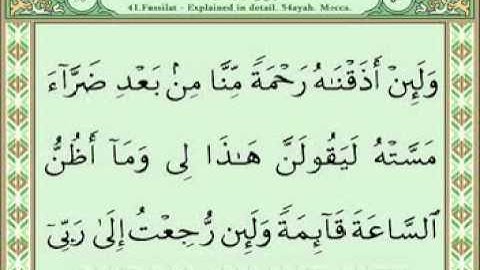 41.Fussilat - Explained in detail. 54ayah. Mecca.
وَلَئِنْ أَذَقْنَـٰهُ رَحْمَةً مِّنَّا مِنۢ بَعْدِ ضَرَّآءَ
مَسَّتْهُ لَيَقُولَنَّ هَـٰذَا لِى وَمَآ أَظُنُّ
ٱلسَّاعَةَ قَآئِمَةً وَلَئِن رُّجِعْتُ إِلَىٰ رَبِّىٓ